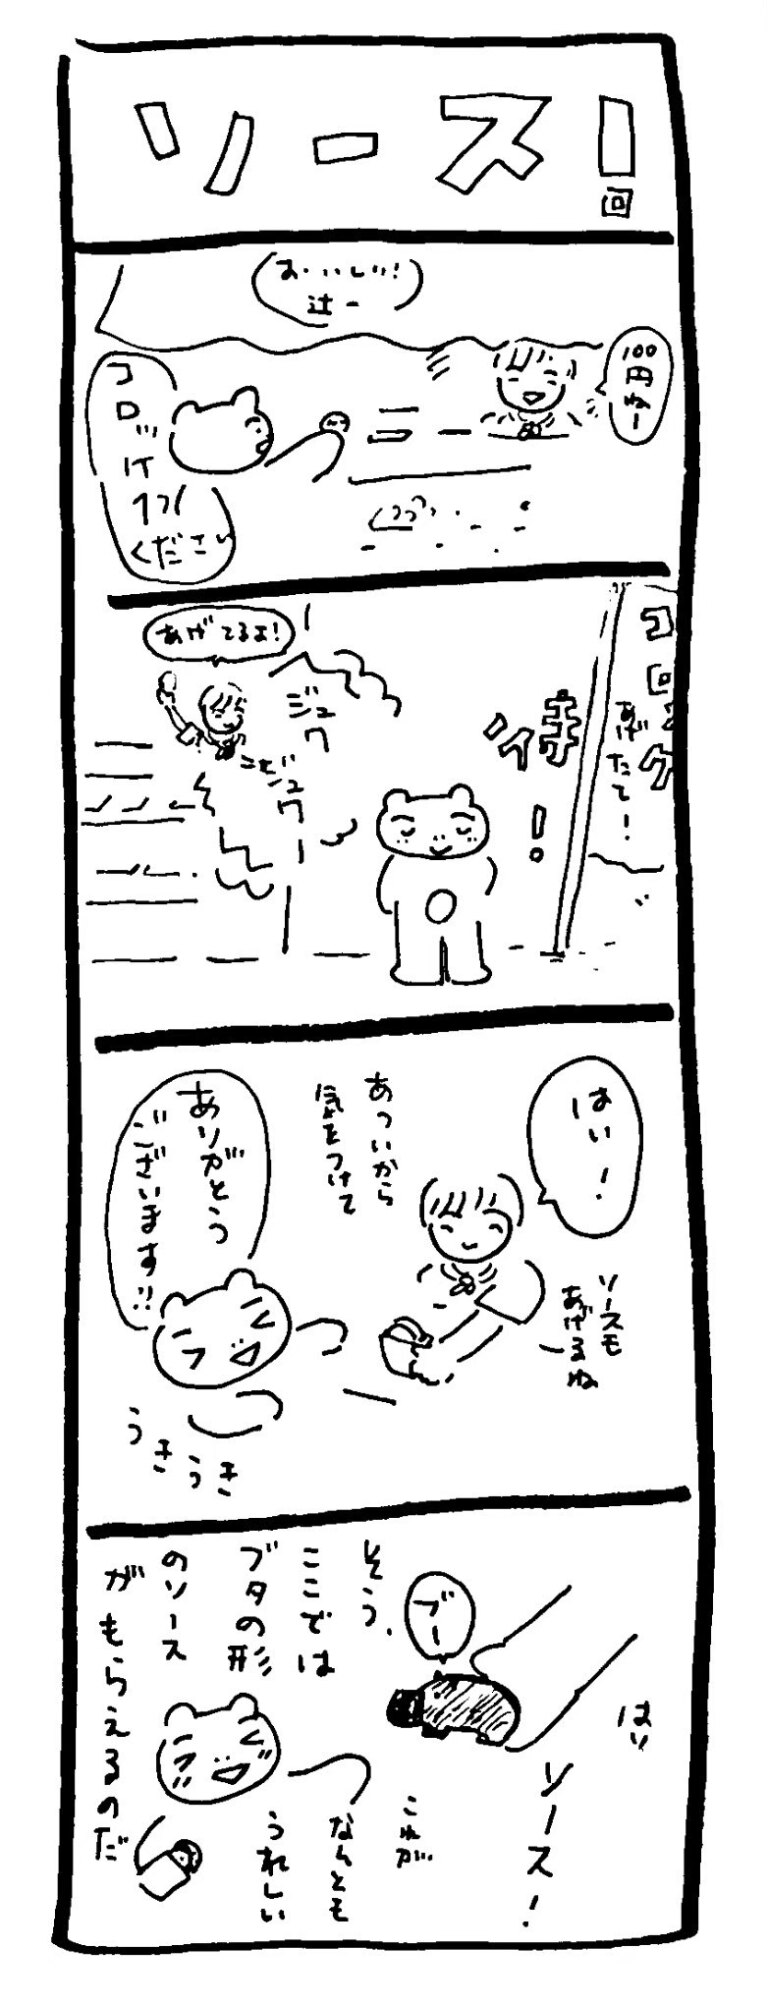 ソース!
回
おいしい!
コロッケ
1つ
ください
100
円
ねー
コロッケ
あげたて!
あげてるよ!
ジュワ
ジュワ
ソイ
!
はい!
あついから
気をつけて
ソースも
あげるね
ありがとう
ございます!!
うきうき
はい
ソース!
ブー
そう、
ここでは
ブタの形
のソース
がもらえるのだ
これが
なんとも
うれしい